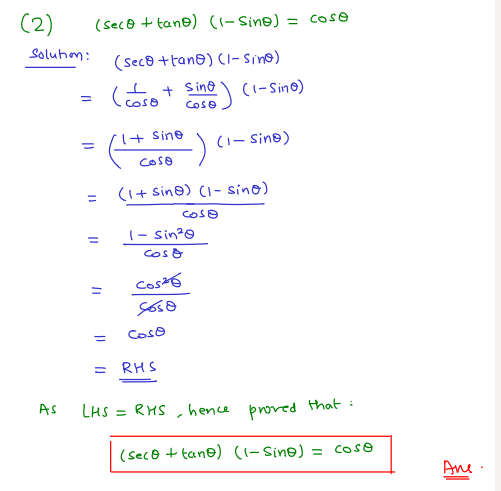 (2) (secθ + tanθ) (1 - sinθ) = cosθ
Solution: (secθ + tanθ) (1 - sinθ)
= (1/cosθ + sinθ/cosθ) (1 - sinθ)
= ((1 + sinθ)/cosθ) (1 - sinθ)
= (1 + sinθ) (1 - sinθ)/cosθ
= 1 - sin²θ/cosθ
= cos²θ/cosθ
= cosθ
= RHS
As LHS = RHS, hence proved that :
(secθ + tanθ) (1 - sinθ) = cosθ
Ans.